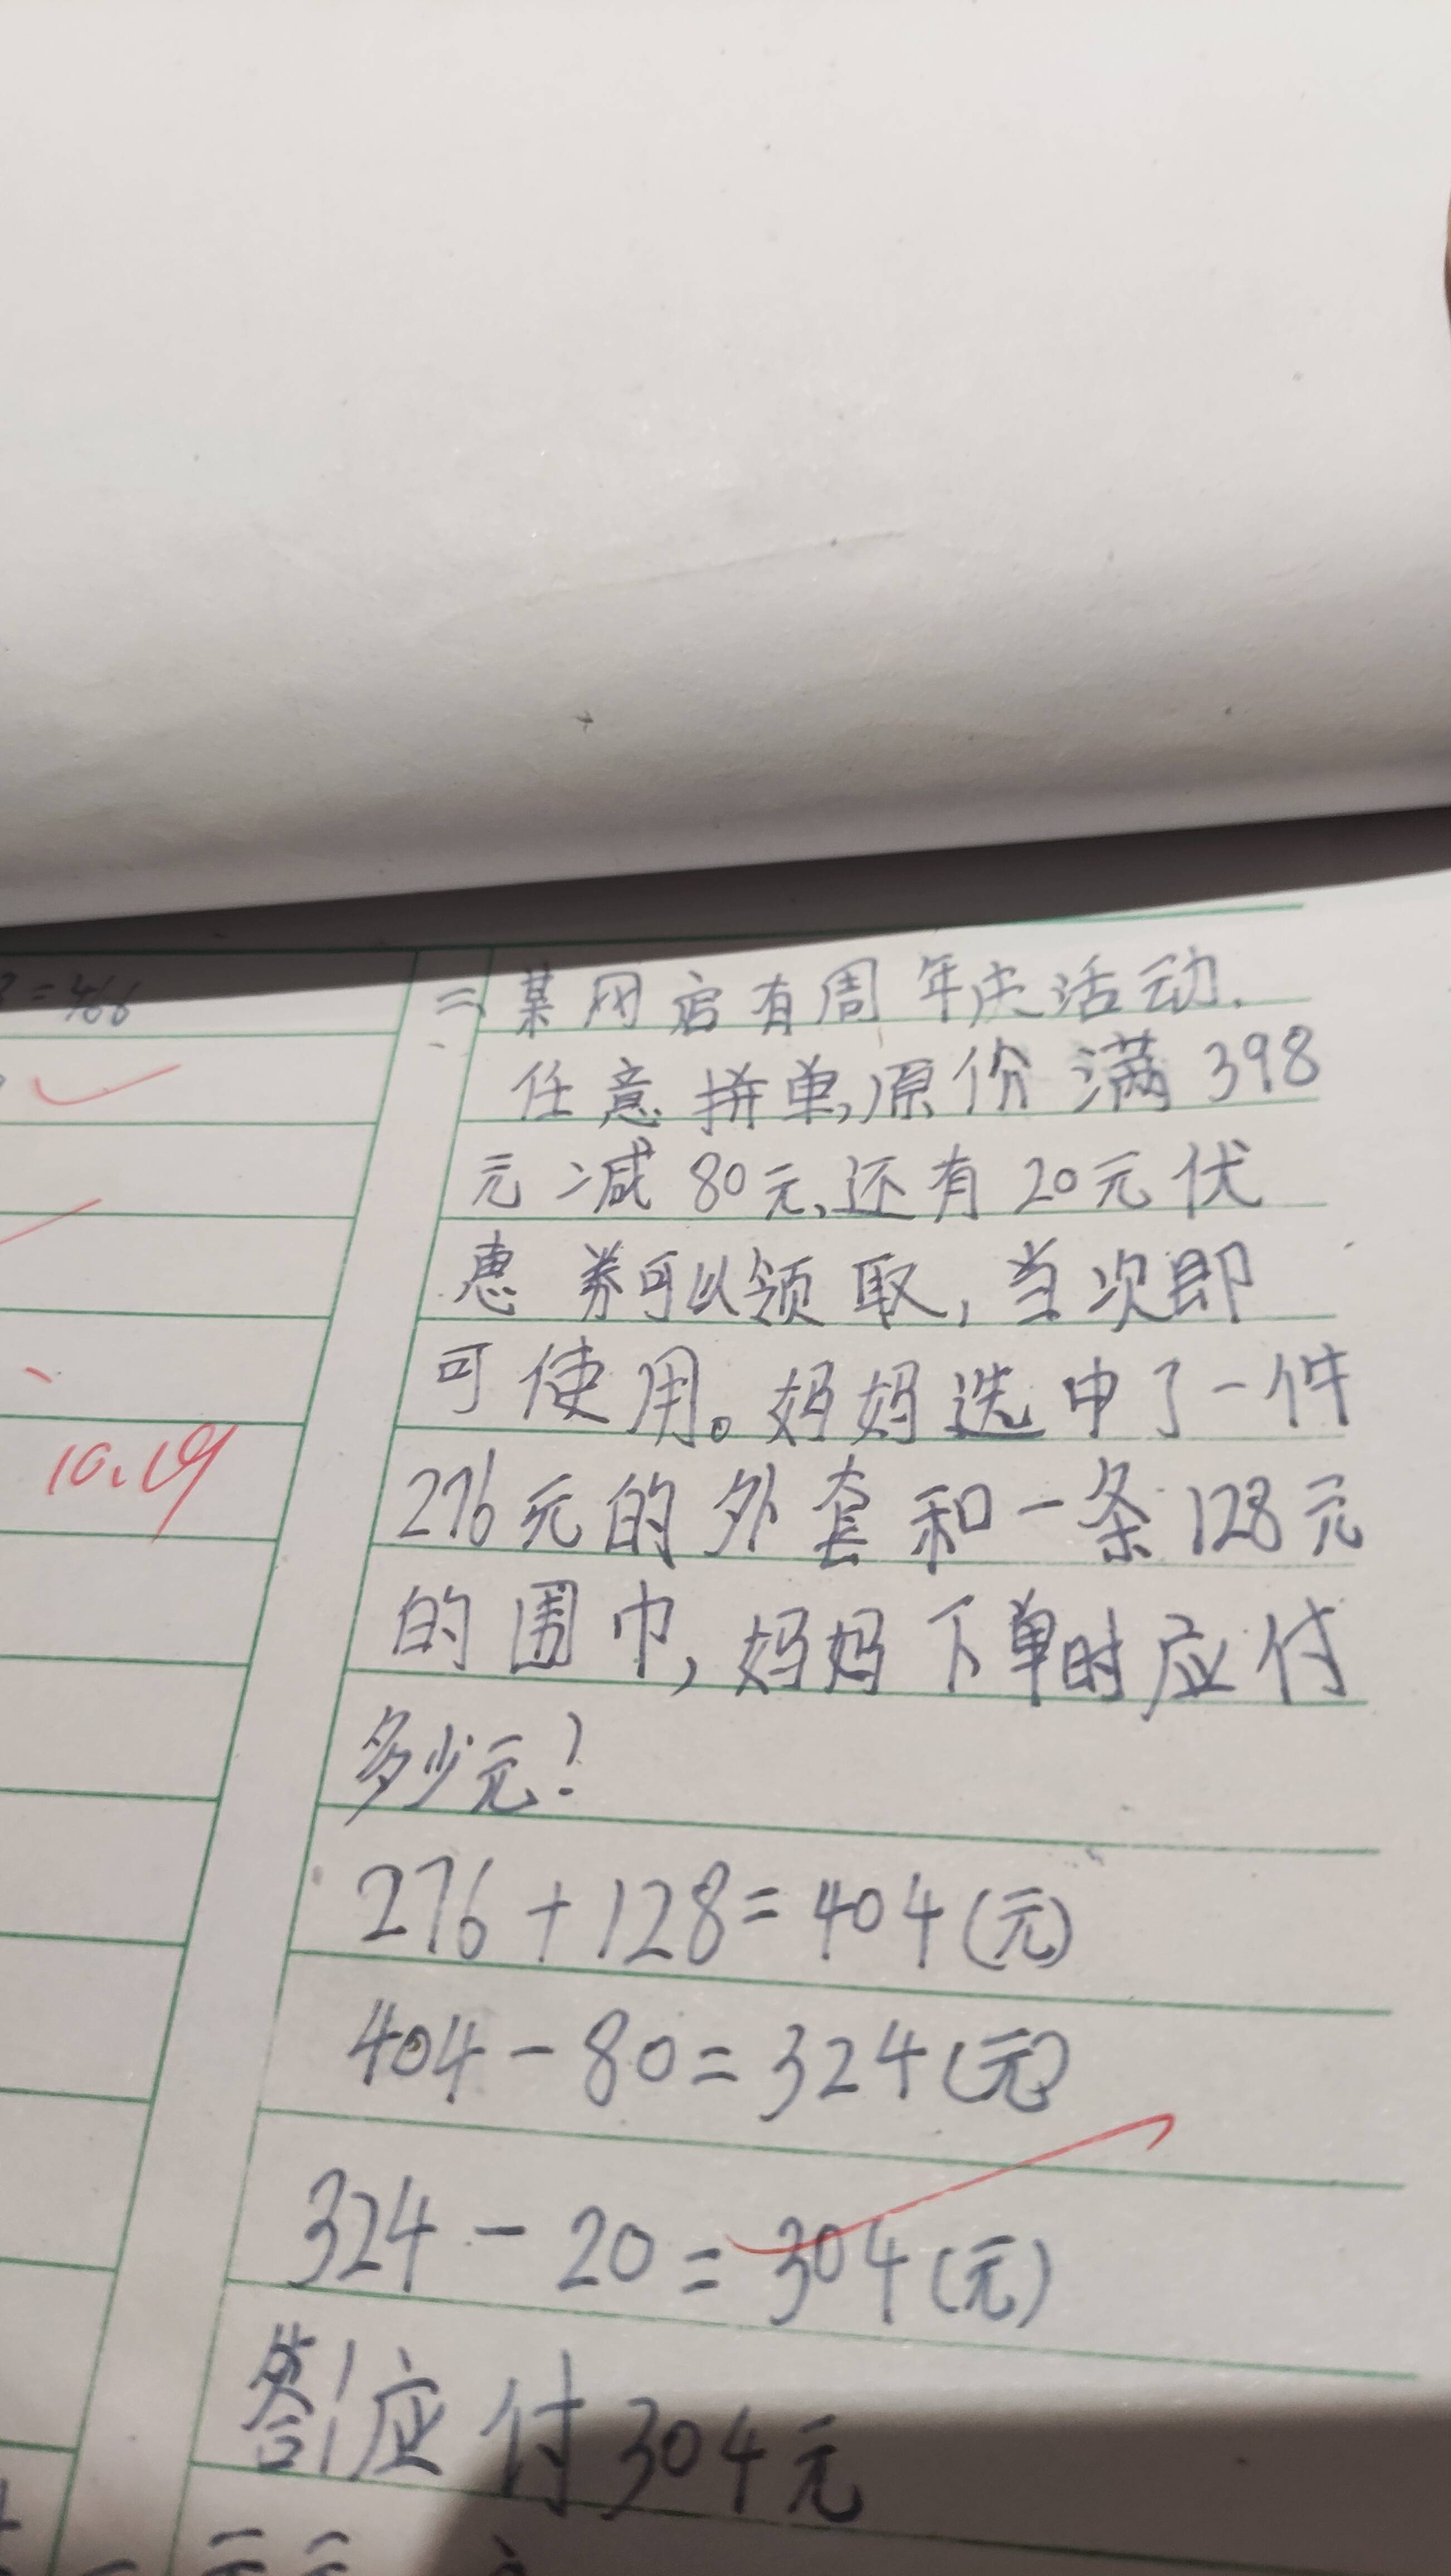 =466
10.19
二、某网店有周年庆活动.
任意拼单,原价满398
元减80元、还有20元伏
惠券可以领取,当次即
可使用。妈妈选中了一件
276元的外套和一条128元
的围巾,妈妈下单时应付
多少元!
276+128=404(元)
404-80=324(元)
324-20=304(元)
答:应付304元